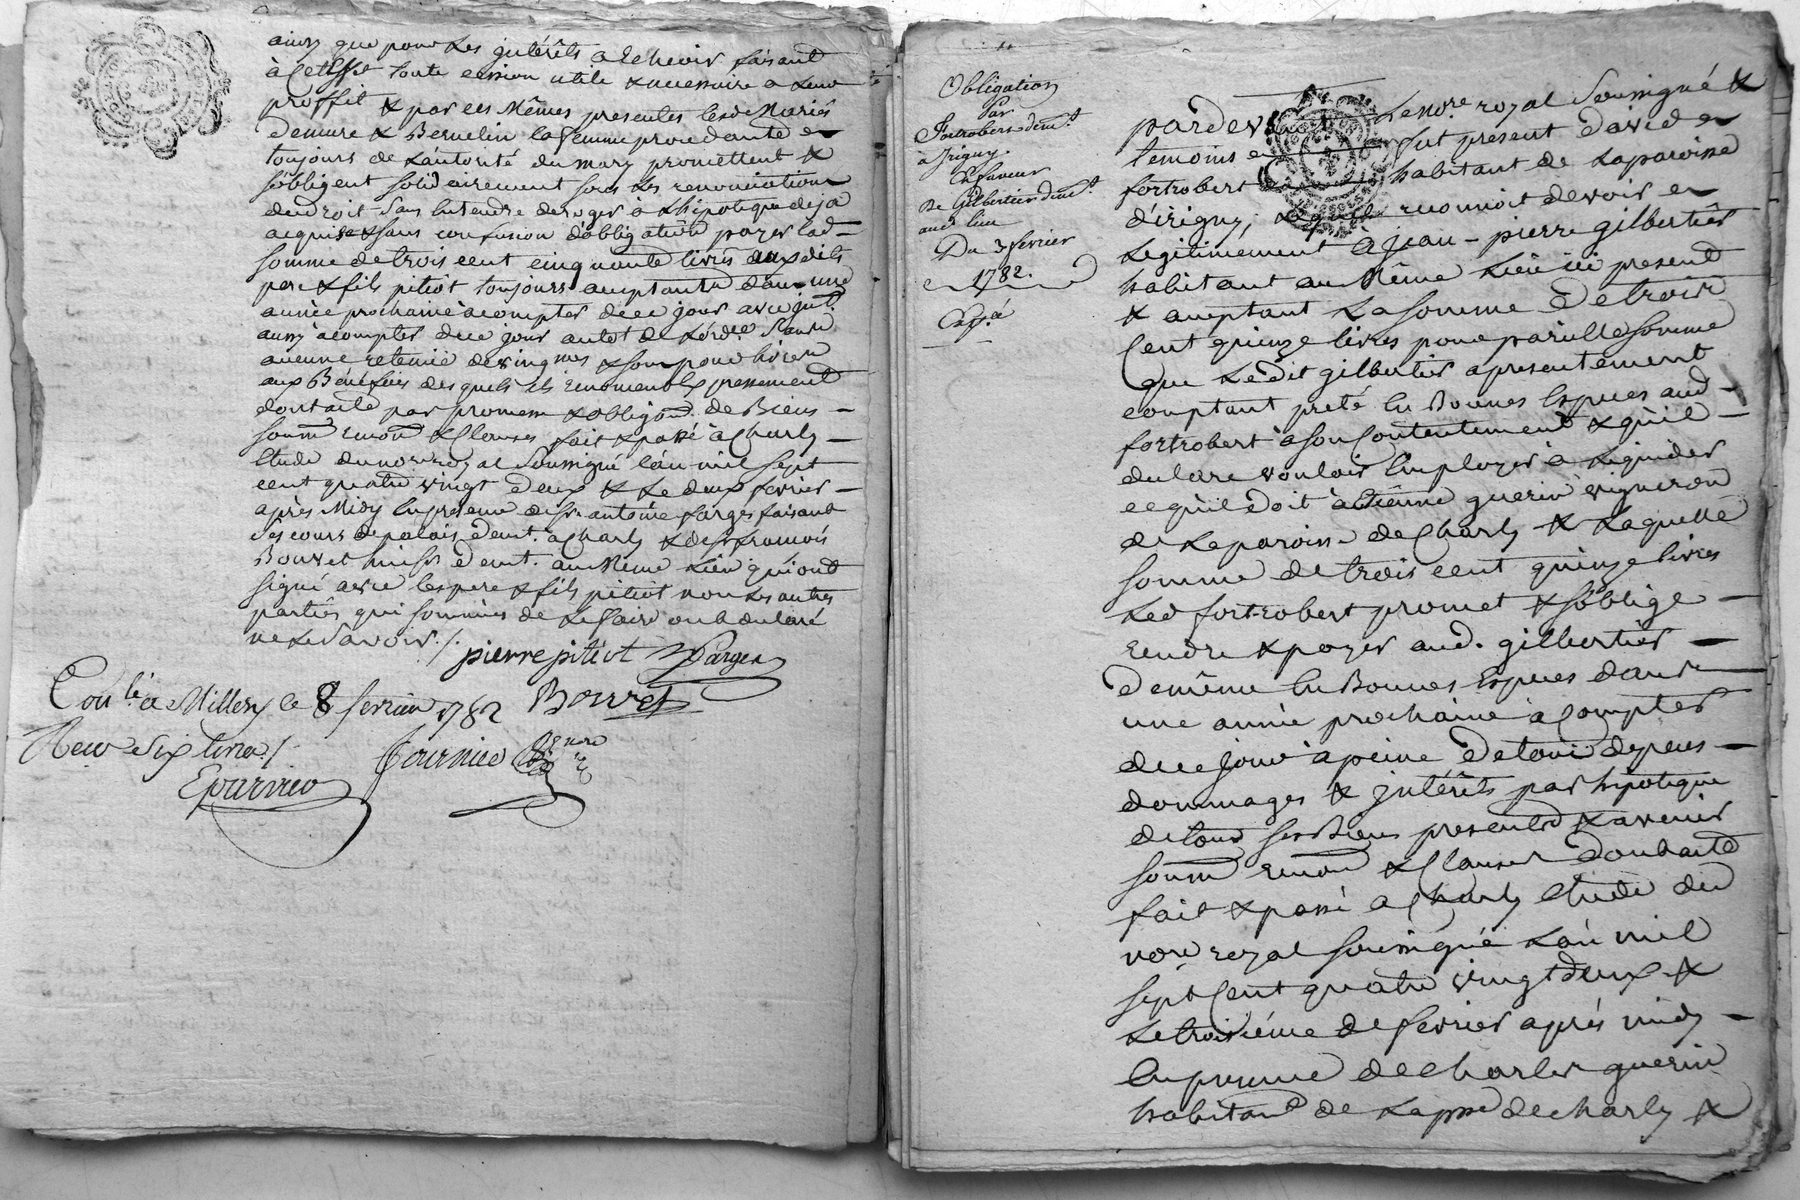 ainsy que pour les jntérêts a Echeoir faisant
à Cet effet toute cession utile & necessaire a leur
proffit & par ces Mêmes presentes lesd. Mariés
demure & Bernelin la femme procedante
toujours de L'autorité du mary promettent &
s'obligent solidairement sous les renonciations
de droit sans Entendre deroger à L'hipoteque deja
acquise & sans confusion d'obligation payer lad.
somme de trois cent cinquante livres auxdits
pere & fils pitiot toujours acceptants dans une
année prochaine à compter de ce jour avec jnt.
aussy à compter de ce jour au tot de L'ord.ce sans
aucune retenüe de vingmes & son pour livre
aux Benefices desquels ils renoncent Expressement
dont acte par promesse & obligaon. de Biens
soumon renon & Clauses fait & passé à Charly
Etude du nore royal soussigné L'an mil sept
cent quatre vingt deux & Le deux fevrier
après Midy En presence de sr. antoine farges faisant
ses cours de palais demt. à Charly & de sr. francois
Bouvet huissr demt. au Même Lieu qui ont
signé avec les pere & fils pitiot non les autres
parties qui sommées de Le faire ont declaré
ne Le Savoir ./.
pierre pitiot farges
Bouvet
Conlé a Millery le 8 fevrier 1782
Recu six livres /.
Fournier
Epurnier
Obligation
Par
Fortrobert demt.
a Jrigny.
En faveur
De Gilbertier demt.
aud. lieu
Du 3 fevrier
1782.
Exp.é
pardevant Le nore. royal Soussigné &
temoins fut present david
fortrobert habitant de La paroisse
d'irigny, Lequel reconnoit devoir
Legitimement à jean-pierre gilbertier
habitant au Même Lieu ici present
& acceptant La somme De trois
Cent quinze livres pour pareille somme
que Ledit gilbertier a presentement
comptant preté En Bonnes Especes aud.
fortrobert à son Contentement & qu'il
declare vouloir Employer à Liquider
ce qu'il doit à Etienne guerin vigneron
de La paroisse de Charly & Laquelle
somme de trois cent quinze livres
Led fortrobert promet & s'oblige
rendre & payer aud. gilbertier
de même En Bonnes Especes dans
une année prochaine à Compter
de ce jour à peine de tous depens
dommages & jntérêts par hipoteque
de tous ses Biens presents & avenir
soumon renon & Clauses dont acte
fait & passé a Charly Etude du
nore royal soussigné L'an mil
sept Cent quatre vingt deux &
Le troisiéme de fevrier après midy
En presence de Charles guerin
habitant de La psse de Charly &